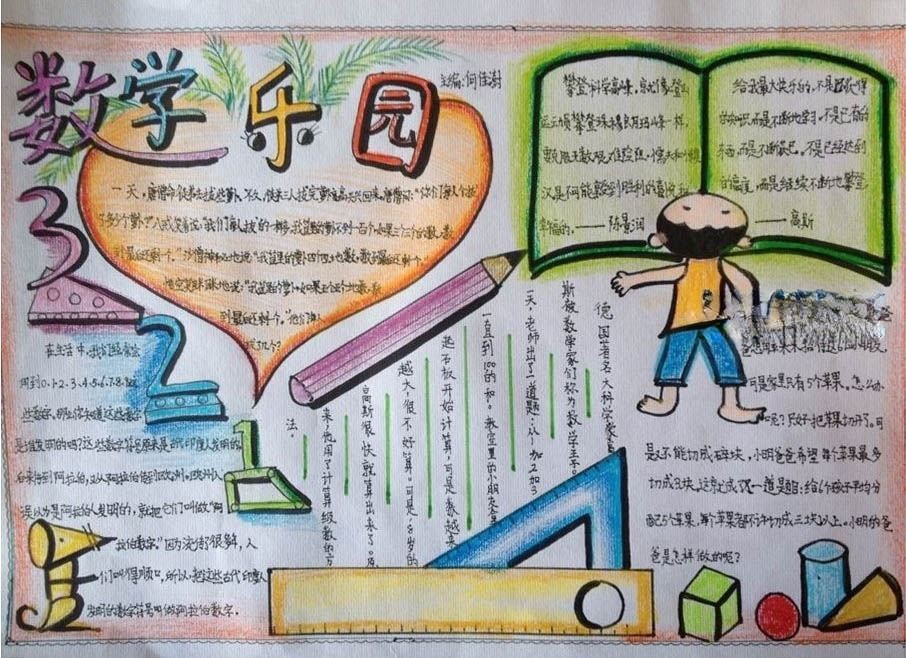 数学乐园
主编：何佳澍
一天，唐僧命徒弟去找些
不久，徒弟三人
回来，唐僧问：“你们每人
了多少个
八戒笑着说：“我们每人
的一样多，我
不到一百个，如果三个三个的数，数
到最后还剩1个。”沙僧神秘地说：“我
里的
四个四个地数，数
最后还剩1个。”
悟空
地说：“我
如果五个五个地数，数
到最后还剩1个。”他们每人
几个？
攀登科学高峰，就像登山
运动员攀登珠穆朗玛峰一样，
要
克服无数艰难险阻，懦夫和
汉是不可能
到胜利的喜悦和
幸福的。——陈景润
给我最大快乐的，不是已获得
的知识，而是不断地学习，不是已有的
东西，而是不断
，不是已经达到
的高度，而是继续不断地攀登。
——高斯
3
2
1
在生活中，我们经常会
用到0、1、2、3、4、5、6、7、8、9这
些数字，那么你知道这些数字
是谁发明的吗？这些数字符号原来是古代印度人发明的，
后来传到阿拉伯，又从阿拉伯传到欧洲，欧洲人
误以为是阿拉伯人发明的，就把它们叫做“阿
拉伯数字”，因为流传
，人
们叫得顺口，所以
把这些古代印度人
发明的数字符号叫做阿拉伯数字。
德国著名大科学家高
斯被数学家们称为数学王子。
一天，老师出了一道题：从1加2加3
一直到100的和。教室里的小朋友拿
起石板开始计算，可是数越来
越大，很不好算。可是，
岁的
高斯很快就算出来了。原
来，他用了计算级数的方
法。
可是家里只有5个苹果。怎么办
呢？只好把苹果切开了。可
是又不能切成碎块，小明爸爸希望每个苹果最多
切成3块。这就成了一道题目：给6个孩子平均分
配5个苹果，每个苹果都不许切成三块以上。小明的爸
爸是怎样做的呢？